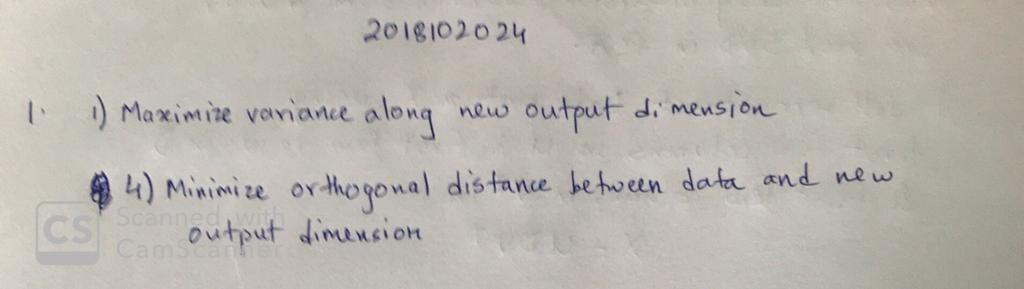 2018102024
1. 1) Maximize variance along new output dimension
4) Minimize orthogonal distance between data and new
output dimension
CS Scanned with
CamScanner